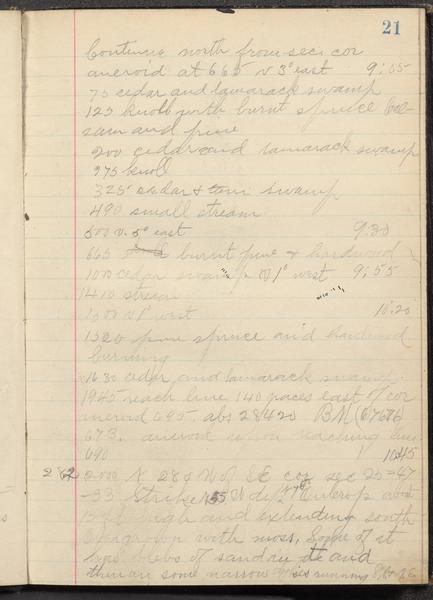 21
Continue north from sec. cor
aneroid at 665 v 3° east 9:05
75 cedar and tamarack swamp
125 knoll with burnt spruce bal-
sam and pine
200 cedar and tamarack swamp
275 knoll
325 cedar + tam swamp
490 small stream
500 v. 5° east 9:30
665 burnt pine & hardwood
1000 cedar swamp v 1° west 9;55
1410 stream
1500 v 1° west 10:20
1520 pine spruce and hardwood
burning
1630 cedar and tamarack swamp
1945 reach line 140 paces east of cor
aneroid 695. abs 28420 BM (67676)
673. aneroid upon reaching line
690 10:45
282 2000 N 280 W of SE cor sec 25-47
-33 Strike N 55 W dip outcrop about
15 ft high and extending south
Overgrown with moss. Some of it
has blebs of sandy and
then an some narrow running